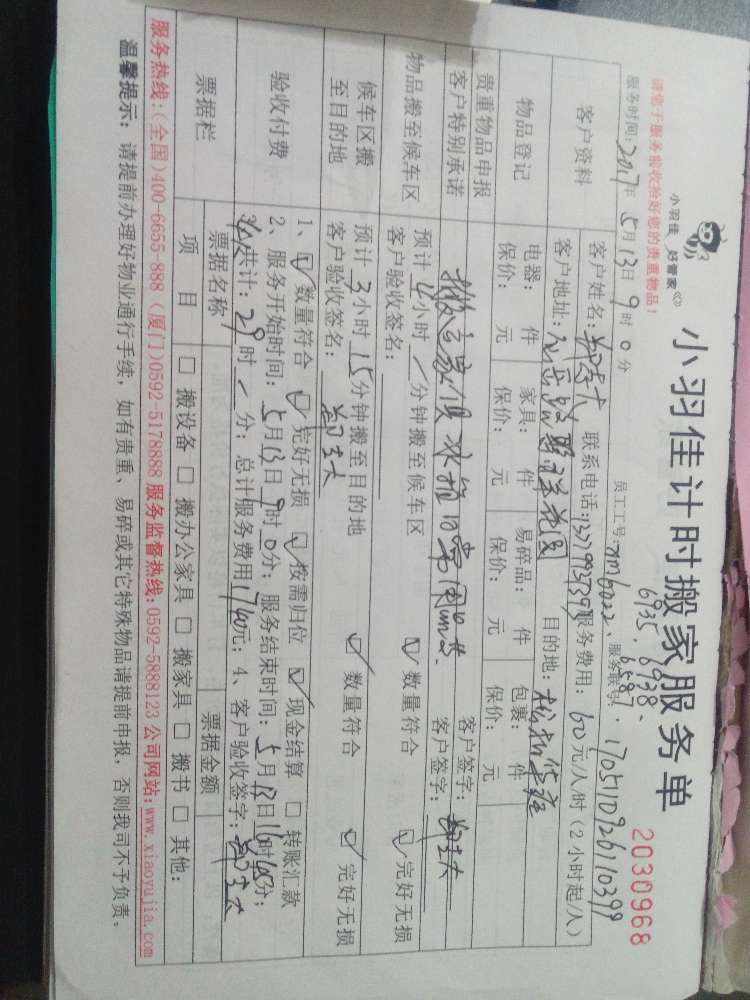 小羽佳计时搬家服务单
2030968
小羽佳 好管家
请您于服务前收拾好您的贵重物品！
员工工号: xm6022、6587、
6935、6938、
服务账号: 1705110926110399
服务时间: 2017年 5月 13日 9时 0分
客户资料
客户姓名: 联系电话: 服务费用: 60元/人/时 (2小时起/人)
客户地址: 目的地:
物品登记
电器: 件 家具: 件 易碎品: 件 包裹: 件
保价: 元 保价: 元 保价: 元 保价: 元
贵重物品申报 客户签字:
客户特别承诺 客户签字:
物品搬至候车区
预计 4小时 / 分钟搬至候车区 ☑ 数量符合 ☑ 完好无损
客户验收签名:
候车区搬至目的地
预计 3小时 15分钟搬至目的地 ☑ 数量符合 ☑ 完好无损
客户验收签名:
验收付费
1、☑ 数量符合 ☑ 完好无损 ☑ 按需归位 ☑ 现金结算 □ 转账汇款
2、服务开始时间: 5月13日9时0分; 服务结束时间: 5月13日16时 分;
共计: 29时 / 分; 总计服务费用1740元; 4、客户验收签字:
票据栏
票据名称 票据金额
项目 □ 搬设备 □ 搬办公家具 □ 搬家具 □ 搬书 □ 其他:
服务热线: (全国)400-6655-888 (厦门)0592-5178888 服务监督热线: 0592-5888123 公司网站: www.xiaoyujia.com
温馨提示: 请提前办理好物业通行手续, 如有贵重、易碎或其它特殊物品请提前申报, 否则我司不予负责。